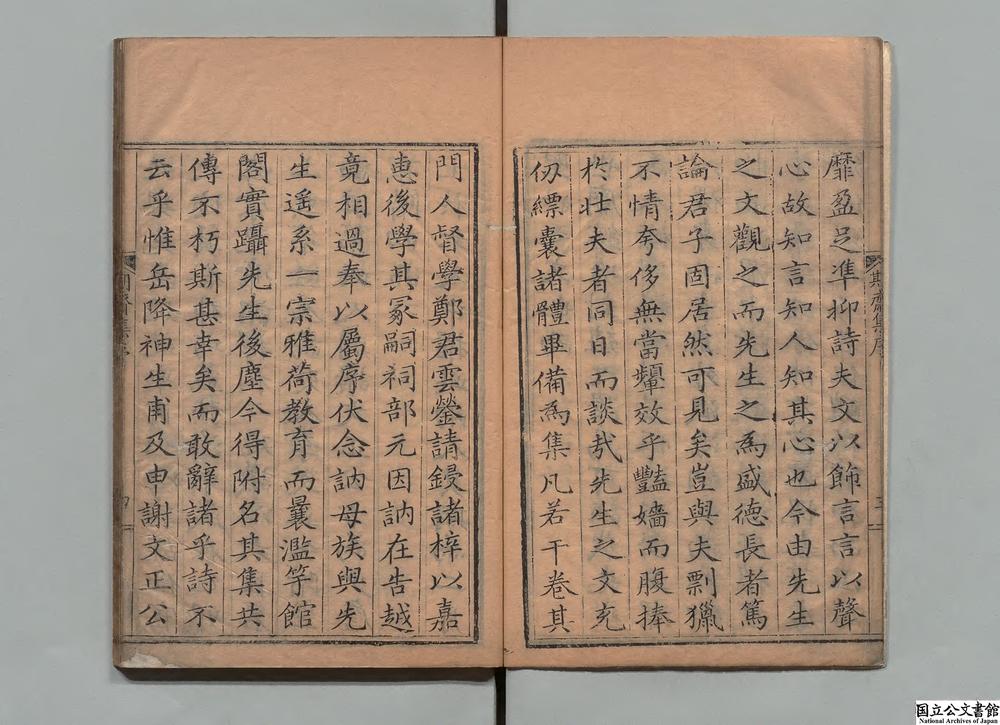 靡盈㠯準抑詩夫文以飾言言以聲
心故知言知人知其心也今由先生
之文觀之而先生之為盛德長者篤
論君子固居然可見矣豈與夫剽獵
不情夸侈無當顰效乎豔嬙而腹捧
於壯夫者同日而談㢤先生之文充
仞縹囊諸體畢備為集凡若干卷其
門人督學鄭君雲鎣請鋟諸梓以嘉
惠後學其冢嗣祠部元因訥在告越
竟相過奉以屬序伏念訥母族與先
生遥系一宗雅荷教育而曩濫竽館
閣實躡先生後塵今得附名其集共
傳不朽斯甚幸矣而敢辭諸乎詩不
云乎惟岳降神生甫及申謝文正公
集序
三
四
国立公文書館
National Archives of Japan